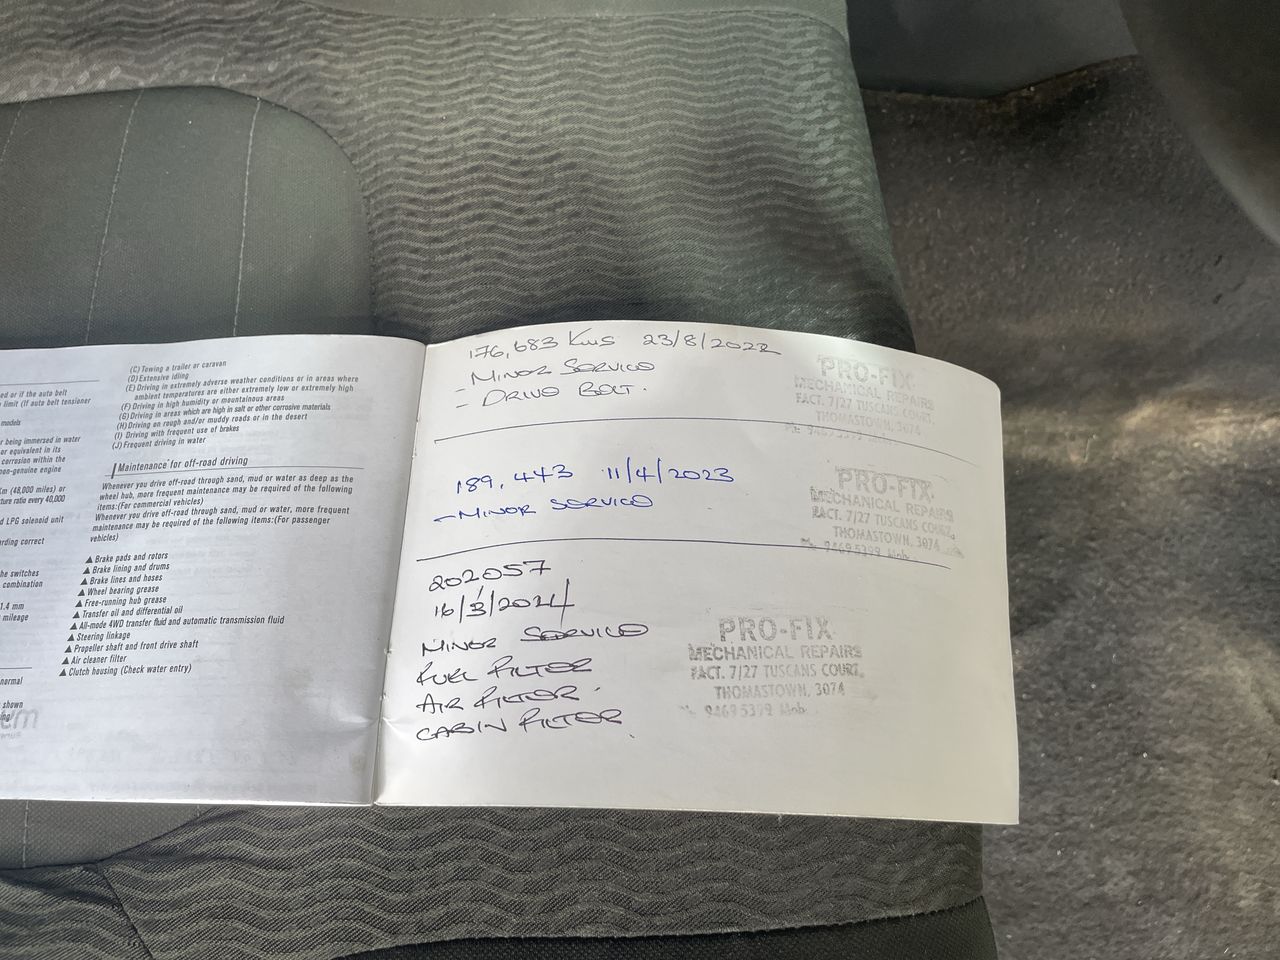 ed or if the auto belt
limit (If auto belt tensioner
models
r being immersed in water
or equivalent in its
corrosion within the
non-genuine engine
Km (48,000 miles) or
ture ratio every 40,000
d LPG solenoid unit
rding correct
he switches
combination
1.4 mm
mileage
normal
shown
(C) Towing a trailer or caravan
(D) Extensive idling
(E) Driving in extremely adverse weather conditions or in areas where
ambient temperatures are either extremely low or extremely high
(F) Driving in high humidity or mountainous areas
(G) Driving in areas which are high in salt or other corrosive materials
(H) Driving on rough and/or muddy roads or in the desert
(I) Driving with frequent use of brakes
(J) Frequent driving in water
Maintenance for off-road driving
Whenever you drive off-road through sand, mud or water as deep as the
wheel hub, more frequent maintenance may be required of the following
items:(For commercial vehicles)
Whenever you drive off-road through sand, mud, water, more frequent
maintenance may be required of the following items:(For passenger
vehicles)
▲ Brake pads and rotors
▲ Brake lining and drums
▲ Brake lines and hoses
▲ Wheel bearing grease
▲ Free-running hub grease
▲ Transfer oil and differential oil
▲ All-mode 4WD transfer fluid and automatic transmission fluid
▲ Steering linkage
▲ Propeller shaft and front drive shaft
▲ Air cleaner filter
▲ Clutch housing (Check water entry)
176,683 Kms 23/8/2022
- MINOR SERVICE
- DRIVE BELT.
PRO-FIX
MECHANICAL REPAIRS
FACT. 7/27 TUSCANS COURT,
THOMASTOWN, 3074
Ph: 9469 5399 Mob.
189,443 11/4/2023
- MINOR SERVICE
PRO-FIX
MECHANICAL REPAIRS
FACT. 7/27 TUSCANS COURT,
THOMASTOWN, 3074
Ph. 9469 5399 Mob.
202057
16/3/2024
MINOR SERVICE
FUEL FILTER
AIR FILTER
CABIN FILTER
PRO-FIX
MECHANICAL REPAIRS
FACT. 7/27 TUSCANS COURT,
THOMASTOWN, 3074
9469 5399 Mob.